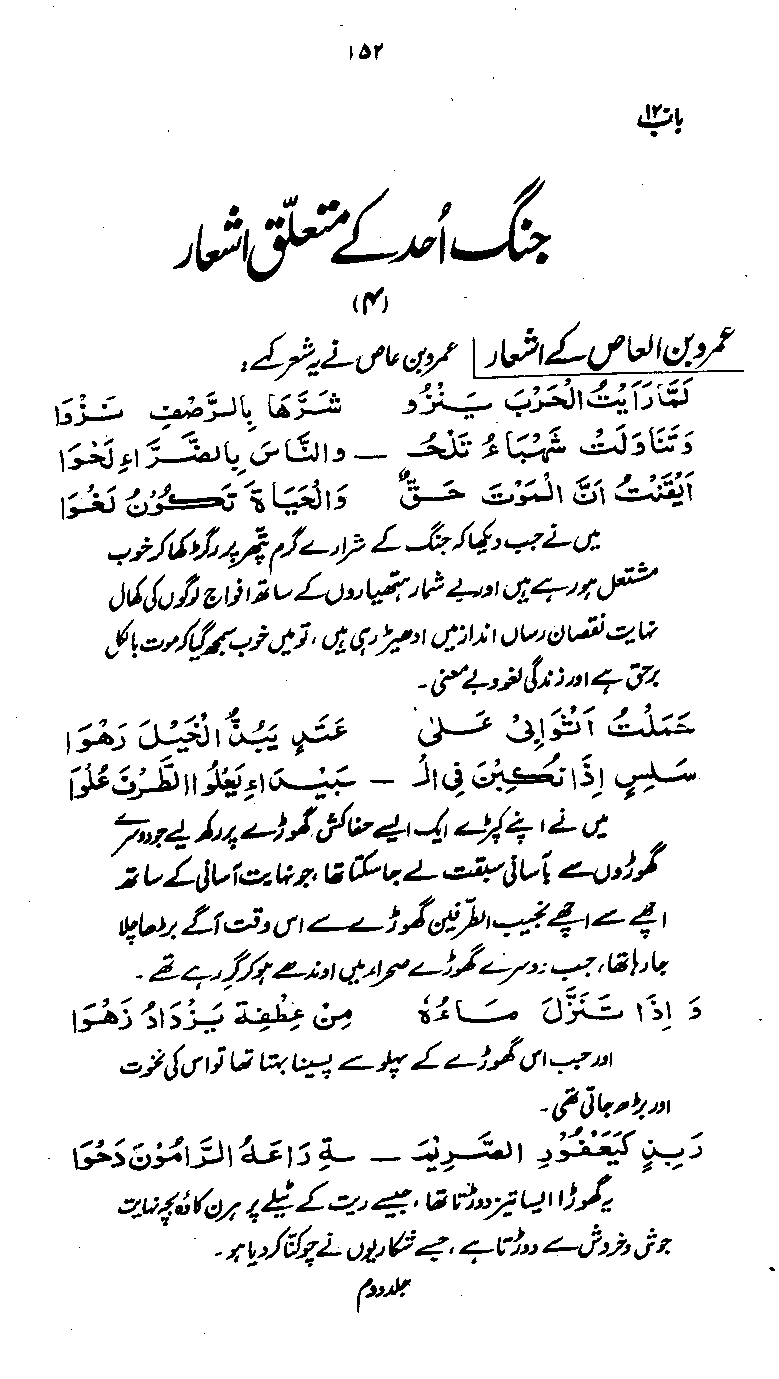 ۱۵۲
باب ۱۲
جنگ اُحد کے متعلّق اشعار
(۴)
عمرو بن العاص کے اشعار | عمرو بن عاص نے یہ شعر کہے :
لَمَّا رَاَیْتُ الْحَرْبَ یَنْزُو شَرُّهَا بِالرَّضْفِ نَزْوَا
وَتَنَاوَلَتْ شَهْبَاءُ تَلْحُـ ـ والنَّاسَ بِالضَّرَّاءِ لَحْوَا
اَیْقَنْتُ اَنَّ الْمَوْتَ حَقٌّ وَالْحَیَاةَ تَکُوْنُ لَغْوَا
میں نے جب دیکھا کہ جنگ کے شرارے گرم پتھر پر رگڑ کھا کر خوب
مشتعل ہو رہے ہیں اور بے شمار ہتھیاروں کے ساتھ افواج لوگوں کی کھال
نہایت نقصان رساں انداز میں ادھیڑ رہی ہیں، تو میں خوب سمجھ گیا کہ موت بالکل
برحق ہے اور زندگی لغو و بے معنی ۔
حَمَلْتُ اَثْوَابِیْ عَلٰی عَتَدٍ یَبُذُّ الْخَیْلَ رَهْوَا
سَلِسٍ اِذَا نُکِبْنَ فِی الْـ ـ بَیْدَاءِ یَعْلُوا الطَّرْفَ عُلْوَا
میں نے اپنے کپڑے ایک ایسے جفاکش گھوڑے پر رکھ لیے جو دوسرے
گھوڑوں سے بآسانی سبقت لے جا سکتا تھا، جو نہایت آسانی کے ساتھ
اچھے سے اچھے نجیب الطرفین گھوڑے سے اس وقت آگے بڑھا چلا
جا رہا تھا، جب دوسرے گھوڑے صحراء میں اوندھے ہو کر گر رہے تھے ۔
وَ اِذَا تَنَزَّلَ مَاءُهٗ مِنْ عِطْفِهٖ یَزْدَادُ زَهْوَا
اور جب اس گھوڑے کے پہلو سے پسینا بہتا تھا تو اس کی نخوت
اور بڑھ جاتی تھی ۔
رَبِذٍ کَیَعْفُوْرِ الصَّرِیْمَـ ـ ـةِ رَاعَهُ الرَّامُوْنَ دَحْوَا
یہ گھوڑا ایسا تیز دوڑتا تھا، جیسے ریت کے ٹیلے پر ہرن کا وہ بچہ نہایت
جوش و خروش سے دوڑتا ہے، جسے شکاریوں نے چوکنّا کر دیا ہو ۔
جلد دوم